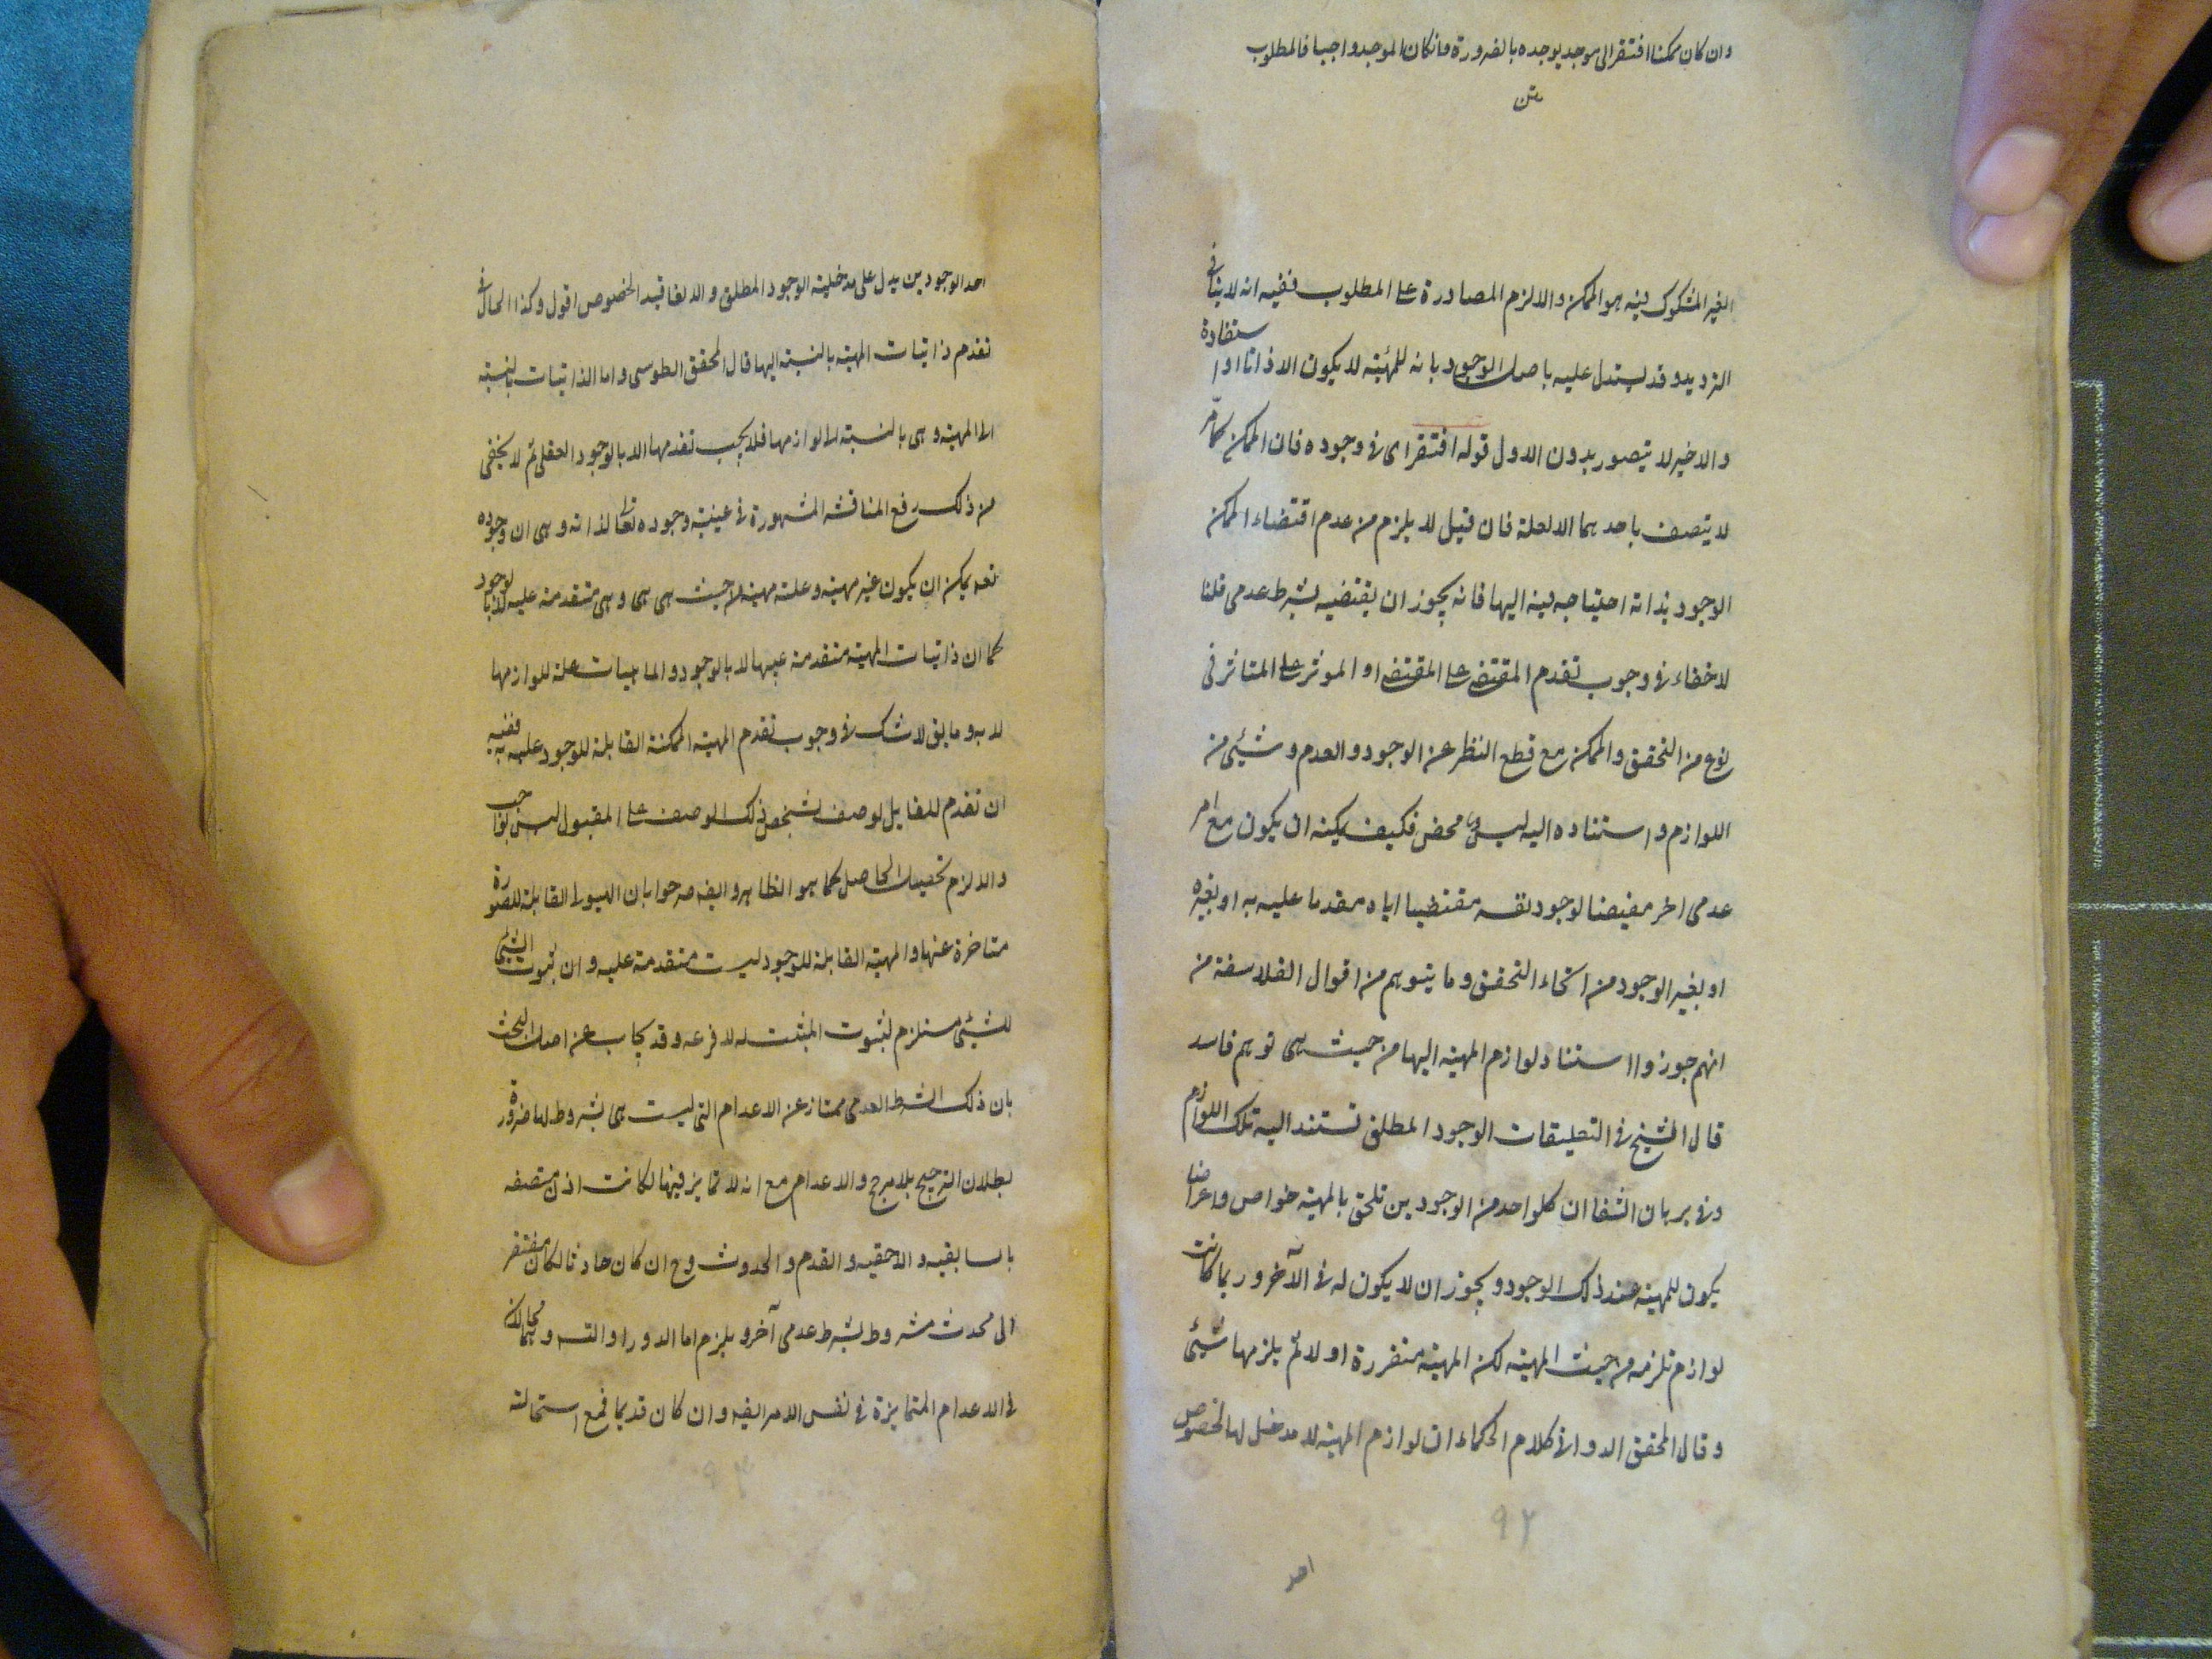 وان كان ممكنا افتقر الى موجد يوجده بالضرورة فانكان الموجد واجبا فالمطلوب
متن
الغير المشكوك فيه هو الممكن والا لزم المصادرة على المطلوب ففيه انه لا ينافى
الترديد وقد يستدل عليه باصل الوجود بانه للمهية لا يكون الا ذاتا او مستفادة
والاخير لا يتصور بدون الاول قوله افتقر اى فى وجوده فان الممكن كما مر
لا يتصف باحدهما الا لعلة فان قيل لا يلزم من عدم اقتضاء الممكن
الوجود بذاته احتياجه فيه اليها فانه يجوز ان يقتضيه بشرط عدمى قلنا
لا خفاء فى وجوب تقدم المقتضى على المقتضى او الموثر على المتاثر فى
نوع من التحقق والممكن مع قطع النظر عن الوجود والعدم وشيئى من
اللوازم واستناده اليه ليس محض فكيف يمكنه ان يكون مع امر
عدمى اخر مفيضا لوجود نفسه مقتضيا اياه مقدما عليه به او بغيره
او بغير الوجود من انحاء التحقق وما يتوهم من اقوال الفلاسفة من
انهم جوزوا استناد لوازم المهية اليها من حيث هى توهم فاسد
قال الشيخ فى التعليقات الوجود المطلق تستند اليه تلك اللوازم
وفى برهان الشفا ان كلواحد من الوجودين تلحق بالمهية خواص واعراضا
يكون للمهية عند ذلك الوجود ويجوز ان لا يكون له فى الآخر وربما كانت
لوازم تلزمه من حيث المهية لكن المهية متقررة اولا ثم يلزمها شيئى
وقال المحقق الدوانى كلام الحكماء ان لوازم المهية لا مدخل لها لخصوص
٩٢
احد
احد الوجودين يدل على مدخلية الوجود المطلق والا لغا قيد الخصوص اقول وكذا الحال فى
تقدم ذاتيات المهية بالنسبة اليها قال المحقق الطوسى واما الذاتيات بالنسبة
الى المهية وهى بالنسبة الى لوازمها فلا يجب تقدمها الا بالوجود العقلى ثم لا يخفى
من ذلك رفع المناقشة المشهورة فى عينية وجوده تعالى لذاته وهى ان وجوده
تعه يمكن ان يكون غير مهيته وعلته مهيته من حيث هى هى وهى متقدمة عليه لا بالوجود
كما ان ذاتيات المهية متقدمة عليها لا بالوجود والماهيات علة للوازمها
لا به وما يق لا شك فى وجوب تقدم المهية الممكنة القابلة للوجود عليه به ففيه
ان تقدم للقابل لوصف بشخص ذلك الوصف على المقبول ليس بواجب
والا لزم تحصيل الحاصل كما هو الظاهر وايضه صرحوا بان الهيولى القابلة للصورة
متاخرة عنها والمهية القابلة للوجود ليست متقدمة عليه وان ثبوت الشيئى
للشيئى مستلزم لثبوت المثبت له لا فرعه وقد يجاب عن اصل البحث
بان ذلك الشرط العدمى ممتاز عن الاعدام التى ليست هى بشروط لها ضرورة
لبطلان الترجيح بلا مرجح والاعدام مع انه لا تمايز فيها لكانت اذن متصفه
بالسابقيه والاحقيه والقدم والحدوث وح ان كان حادثا لكان مفتقر
الى محدث مشروط بشرط عدمى آخر ويلزم اما الدور او التسه وهما محالان
فى الاعدام المتمايزة فى نفس الامر ايضه وان كان قديما فمع استحالته